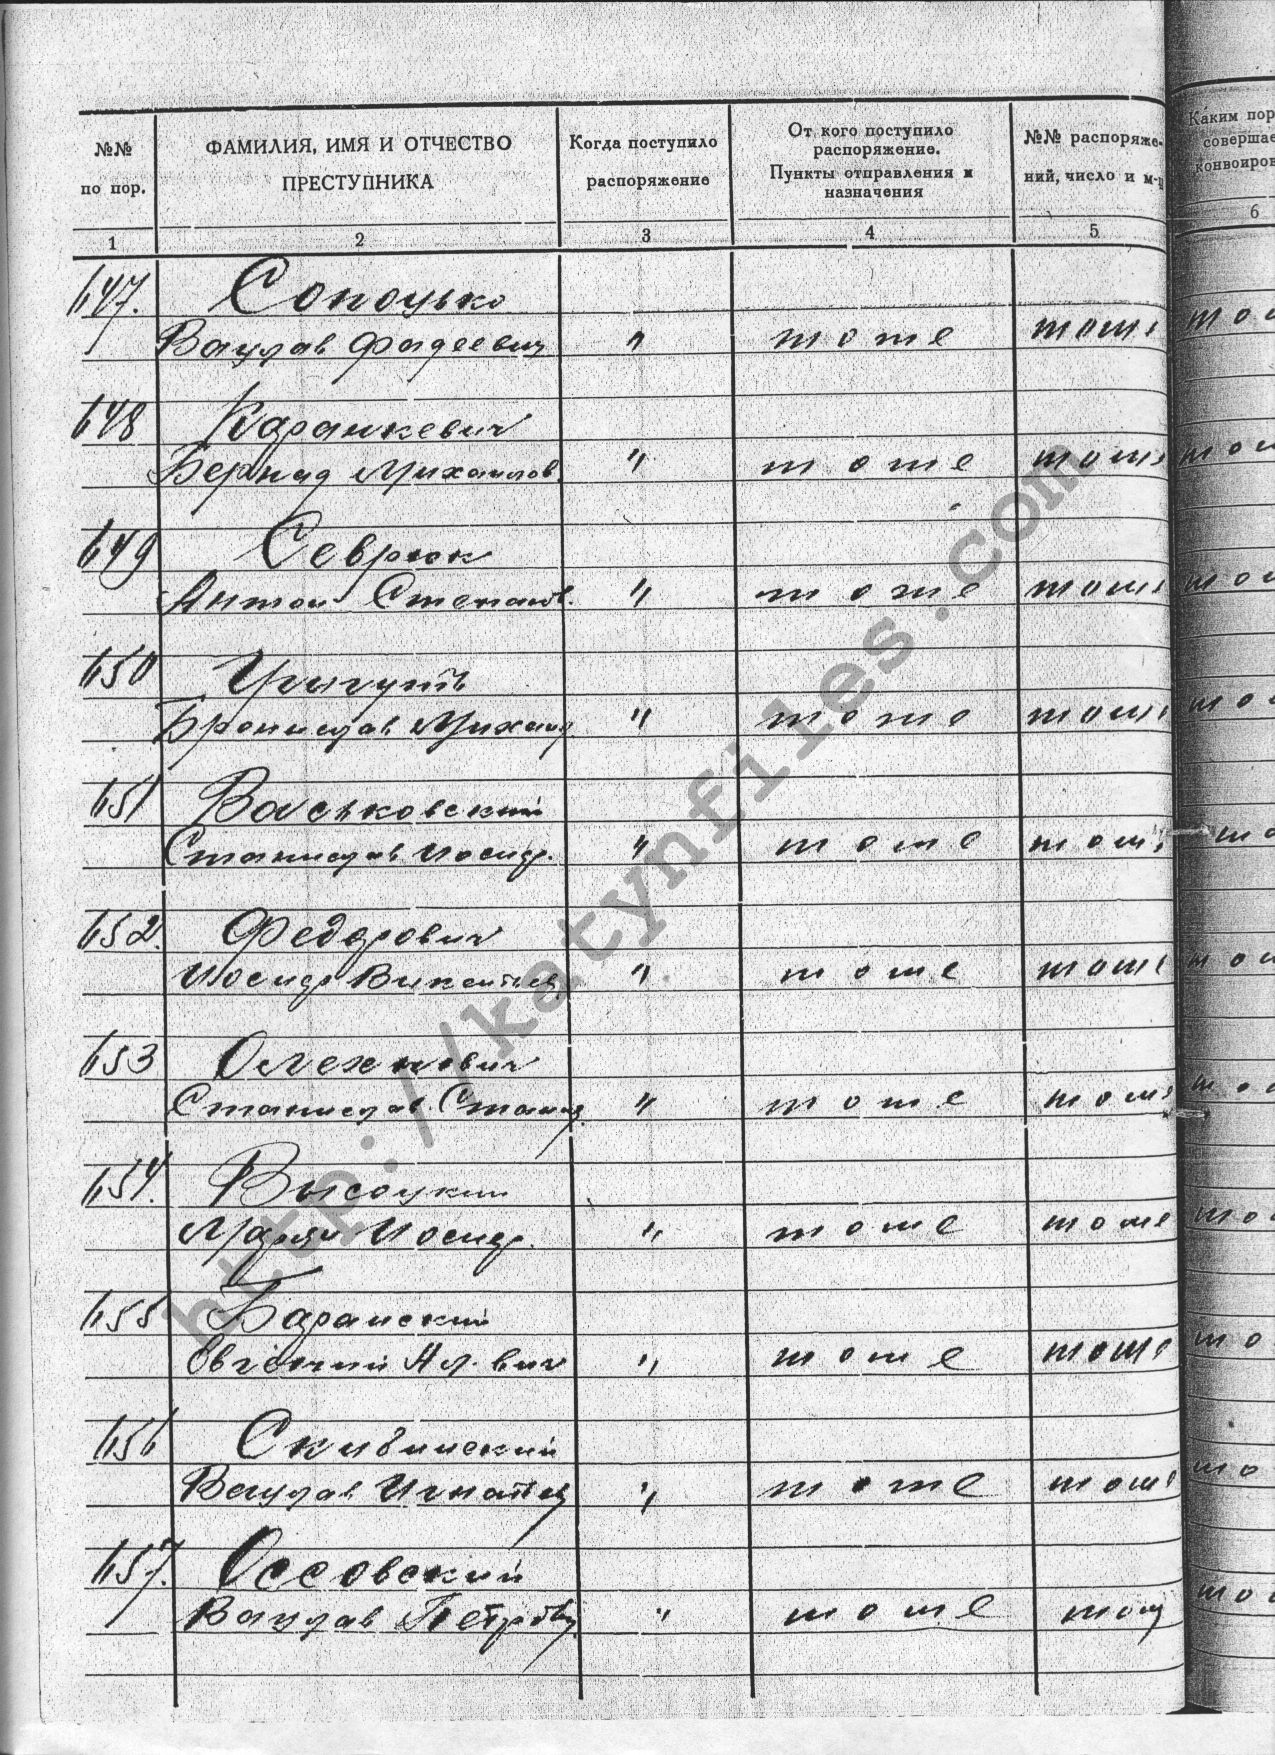 №№ по пор.
ФАМИЛИЯ, ИМЯ И ОТЧЕСТВО ПРЕСТУПНИКА
Когда поступило распоряжение
От кого поступило распоряжение. Пункты отправления и назначения
№№ распоряже- ний, число и м-ц
Каким пор совершае конвоиров
1 2 3 4 5 6
647. Сопоцько
Вацлав Фадеевич " тоже тоже то
648 Каранкевич
Бернад Михайлов. " тоже тоже тож
649 Севрюк
Антон Степанов. " тоже тоже тож
650
Бронислав Михаил " тоже тоже то
651 Васьковский
Станислав Иосиф. " тоже тоже то
652. Федорович
Иосиф Викентьев " тоже тоже тож
653 Олехнович
Станислав Станис " тоже тоже то
654. Высоцкий
Марян Иосиф. " тоже тоже то
655 Баранский
Евгений Ал. вич " тоже тоже то
656 Скибинский
Вацлав Игнатев " тоже тоже то
657. Оссовский
Вацлав Петров " тоже тож то
http://katynfiles.com